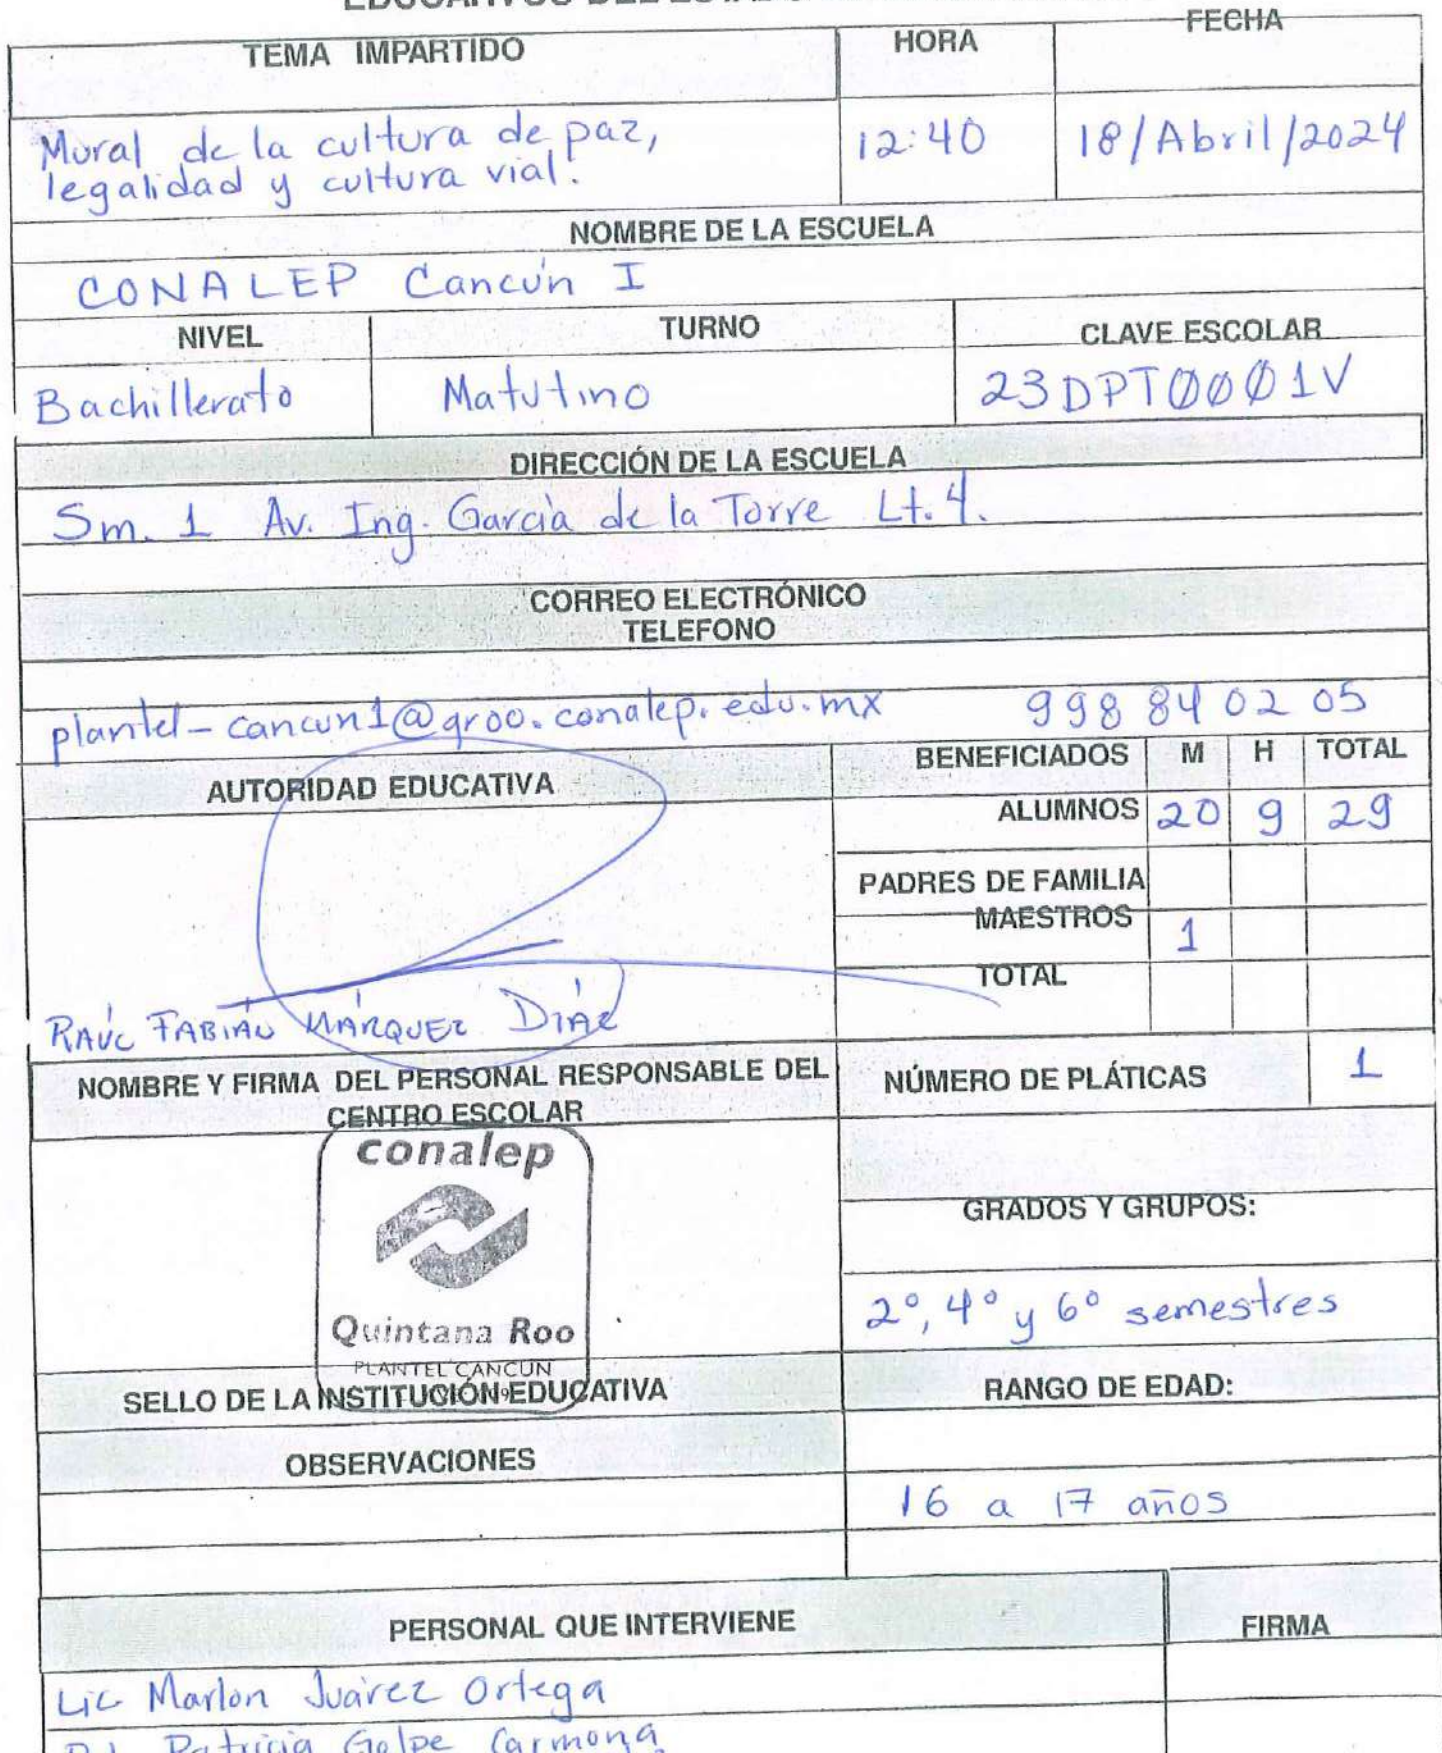 TEMA IMPARTIDO HORA FECHA
Mural de la cultura de paz, 12:40 18/Abril/2024
legalidad y cultura vial.
NOMBRE DE LA ESCUELA
CONALEP Cancún I
NIVEL TURNO CLAVE ESCOLAR
Bachillerato Matutino 23DPT0001V
DIRECCIÓN DE LA ESCUELA
Sm. 1 Av. Ing. García de la Torre Lt. 4.
CORREO ELECTRÓNICO
TELEFONO
plantel-cancun1@qroo.conalep.edu.mx 998 84 02 05
AUTORIDAD EDUCATIVA BENEFICIADOS M H TOTAL
ALUMNOS 20 9 29
PADRES DE FAMILIA
MAESTROS 1
TOTAL
RAÚL FABIÁN MÁRQUEZ DÍAZ
NOMBRE Y FIRMA DEL PERSONAL RESPONSABLE DEL
CENTRO ESCOLAR
NÚMERO DE PLÁTICAS 1
conalep
Quintana Roo
PLANTEL CANCUN
GRADOS Y GRUPOS:
2°, 4° y 6° semestres
SELLO DE LA INSTITUCIÓN EDUCATIVA
RANGO DE EDAD:
OBSERVACIONES
16 a 17 años
PERSONAL QUE INTERVIENE FIRMA
Lic Marlon Juárez Ortega
Patricia Golpe Carmona